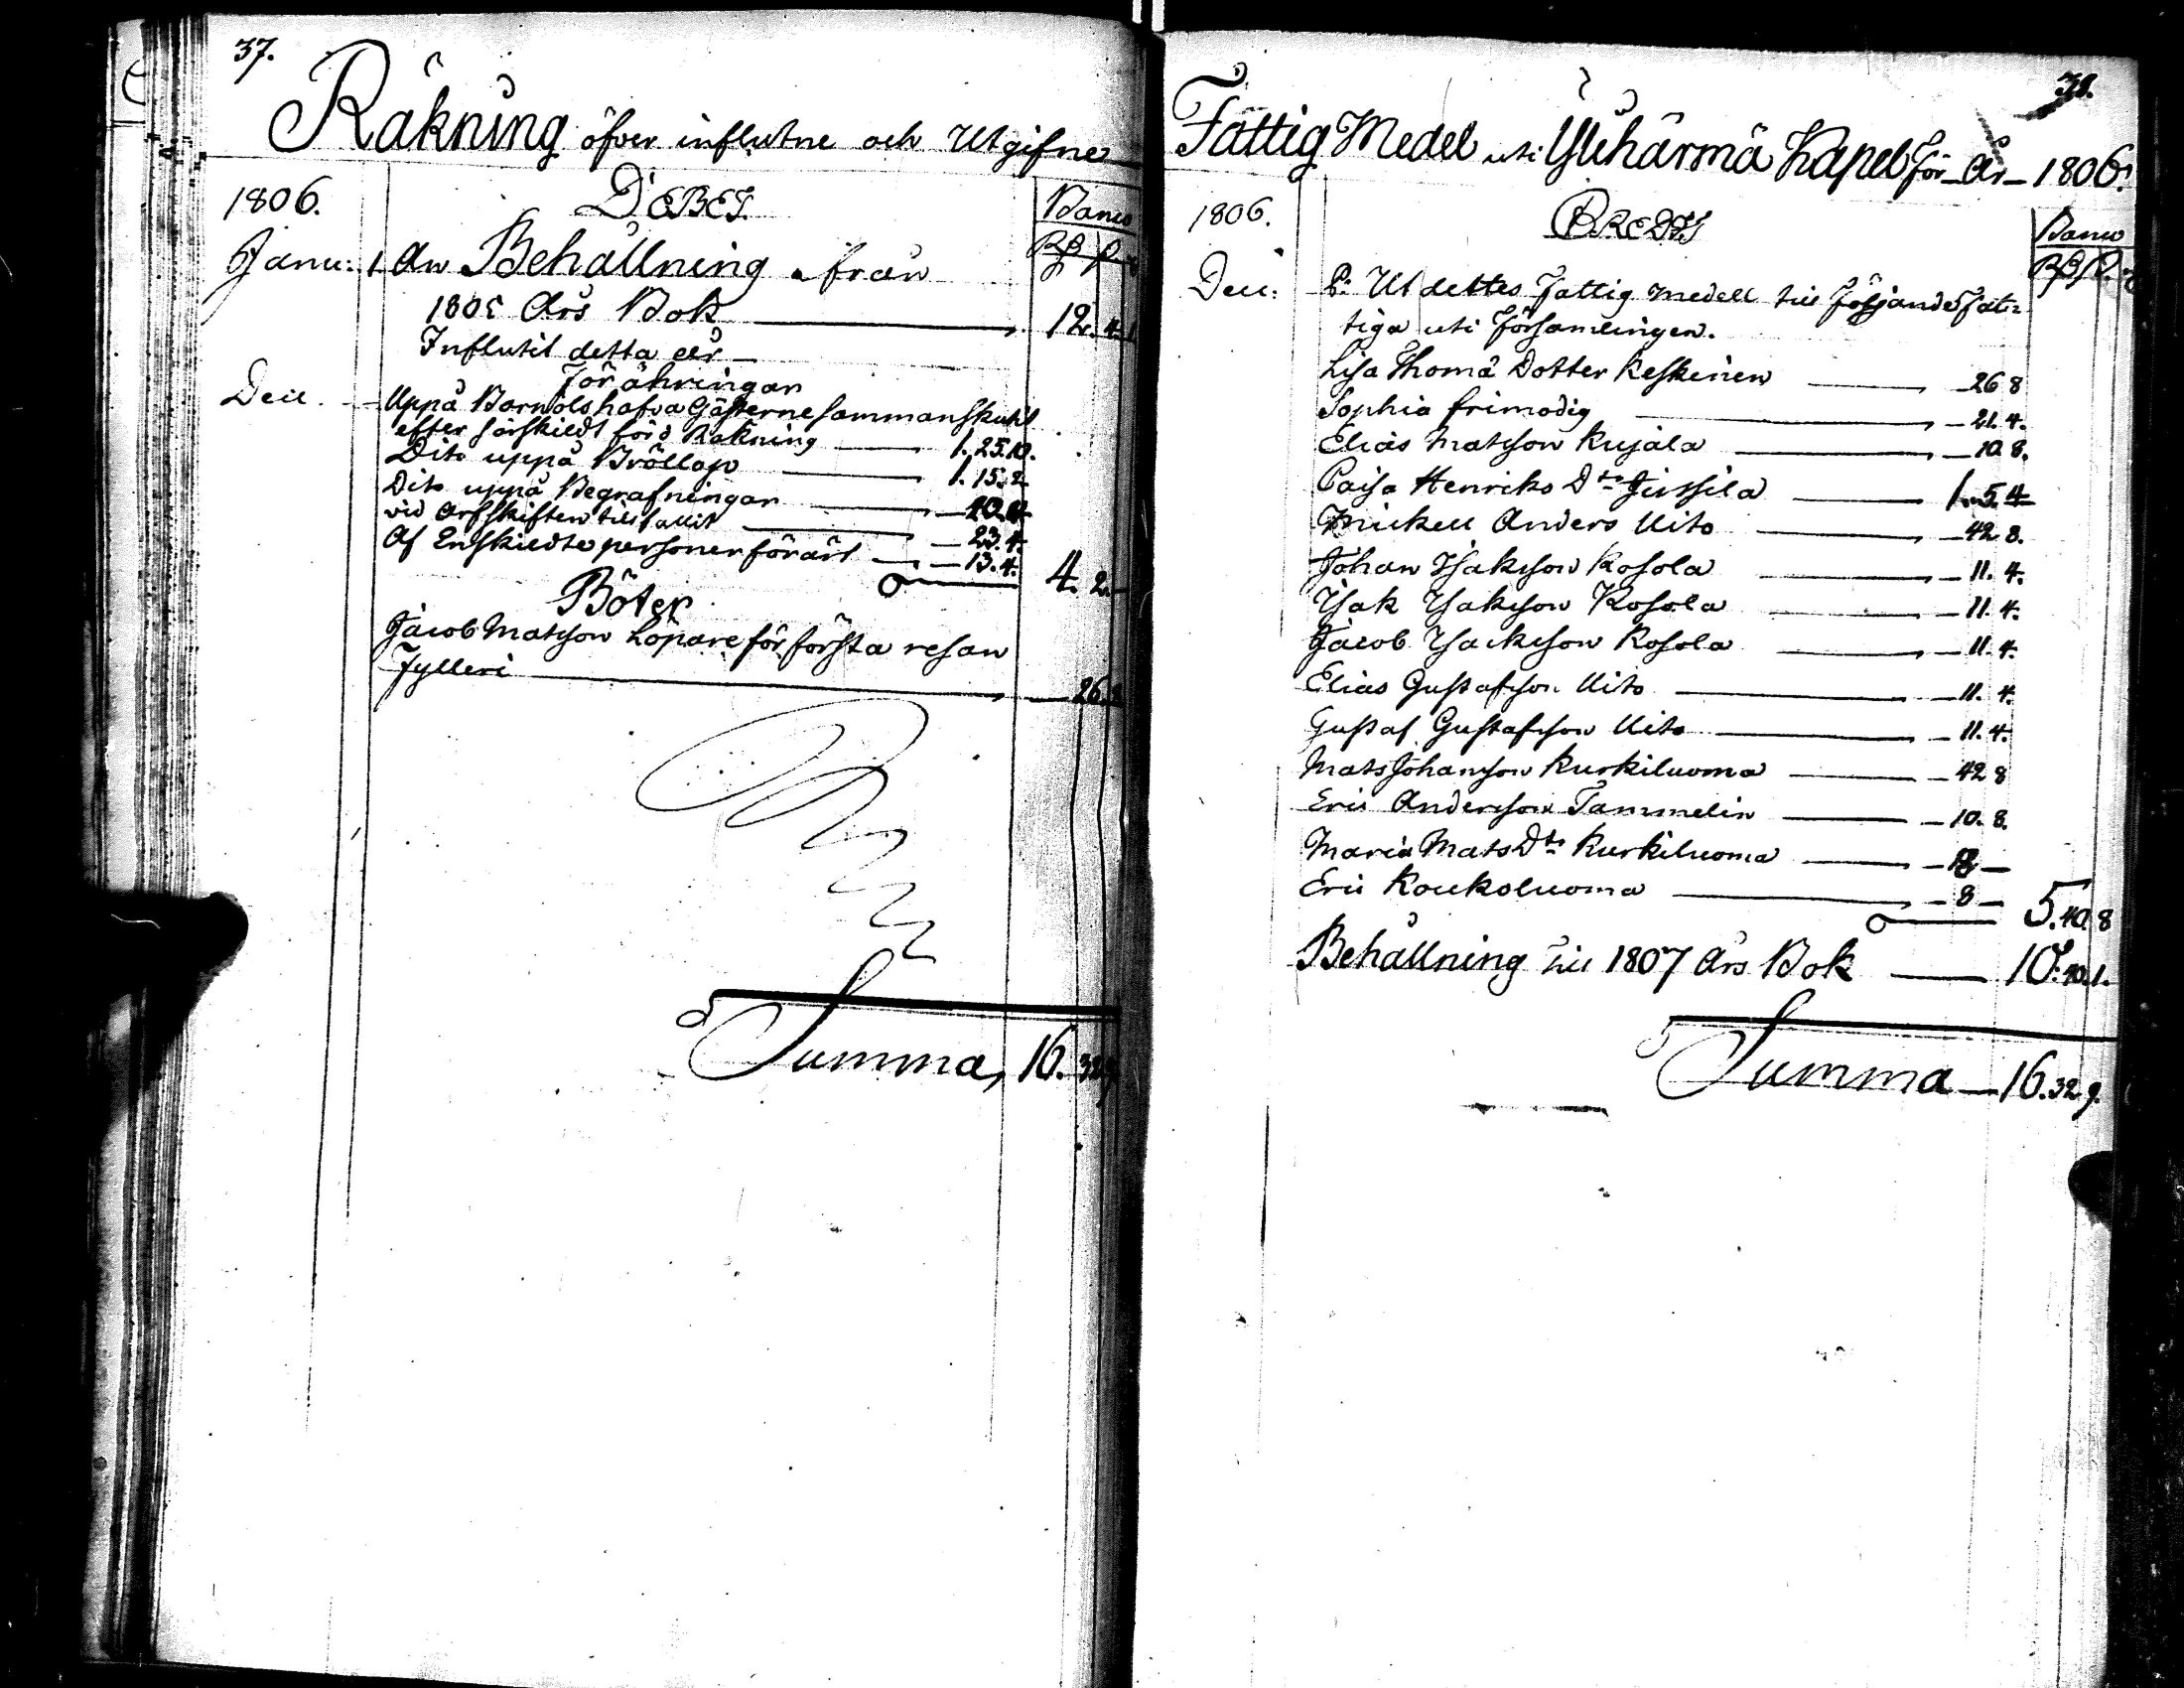 37.
Räkning öfver influtne och Utgifne
1806. DEBET. Banco
Janu: 1 An Behållning ifrån
1805 Års Bok 12. 4. 1
Influtit detta år
Förähringar
Dec. Uppå Barnölshafva Gästerne sammanskutit
efter särskildt förd Räkning 1. 25. 10.
Dito uppå Bröllop 1. 15. 2
Dito uppå Begrafningar
vid Arfskiften tillfallit 23. 4.
Af Enskiedte personer förärt 13. 4. 4. 2.
Böter
Jacob Matsson Löpare för första resan
Fylleri 26.
Summa, 16. 32. 9
38.
Fattig Medel uti Ylihärmä Kapel för År 1806.
1806. CREDIT Banco
Dec: Pr Utdeltes Fattig medell till följande Fat-
tiga uti Församlingen.
Lisa Thomä Dotter Keskinen 26 8
Sophia frimodig 21. 4.
Elias Matsson Kujala 10 8.
Caisa Henriks Dtr Jussila 1. 5. 4
Mickell Anders Uito 42 8.
Johan Isaksson Kosola 11. 4.
Isak Isaksson Kosola 11. 4.
Jacob Isacksson Kosola 11. 4.
Elias Gustafsson Uito 11. 4.
Gustaf Gustafsson Uito 11. 4.
Mats Johansson Kurkiluoma 42 8
Eric Andersson Tammelin 10. 8.
Maria Mats Dtr Kurkiluoma
Eric Koukoluoma 8 5. 40. 8
Behållning till 1807 Års Bok 10. 40. 1.
Summa 16. 32 9.